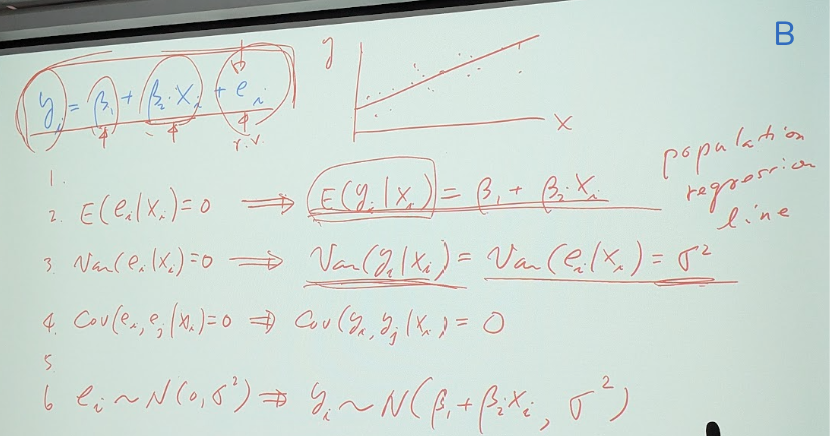 B
yᵢ = β₁ + β₂·xᵢ + eᵢ
r.v.
y
x
1.
2. E(eᵢ|xᵢ)=0 ⟹ E(yᵢ|xᵢ) = β₁ + β₂·xᵢ
population
regression
line
3. Var(eᵢ|xᵢ)=0 ⟹ Var(yᵢ|xᵢ) = Var(eᵢ|xᵢ) = σ²
4. Cov(eᵢ,eⱼ|xᵢ)=0 ⟹ Cov(yᵢ,yⱼ|xᵢ) = 0
5.
6 eᵢ ~ N(0,σ²) ⟹ yᵢ ~ N(β₁+β₂·xᵢ, σ²)